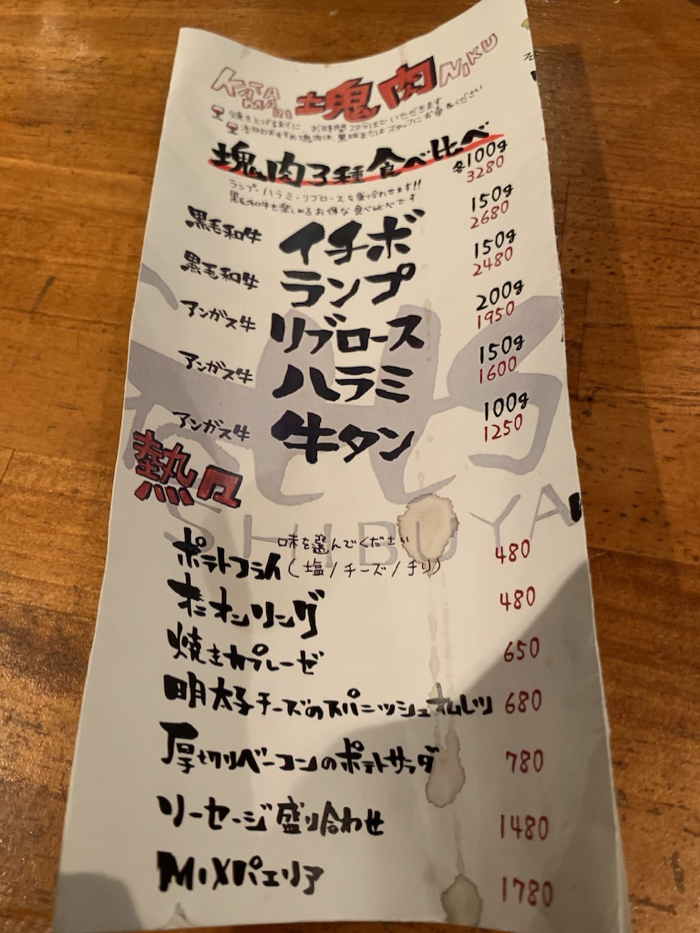 KATAMARI 塊肉 NIKU
焼き上げるまでに お時間20分ほどいただきます
塊肉3種食べ比べ 各100g 3280
ランプ・ハラミ・リブロースを盛り合わせます!!
黒毛和牛も楽しめるお得な食べ比べです
黒毛和牛 イチボ 150g 2680
黒毛和牛 ランプ 150g 2480
アンガス牛 リブロース 200g 1950
アンガス牛 ハラミ 150g 1600
アンガス牛 牛タン 100g 1250
熱々
SHIBUYA
味を選んでください
ポテトフライ (塩/チーズ/チリ) 480
オニオンリング 480
焼きカプレーゼ 650
明太子チーズのスパニッシュオムレツ 680
厚切りベーコンのポテトサラダ 780
ソーセージ盛り合わせ 1480
MIXパエリア 1780